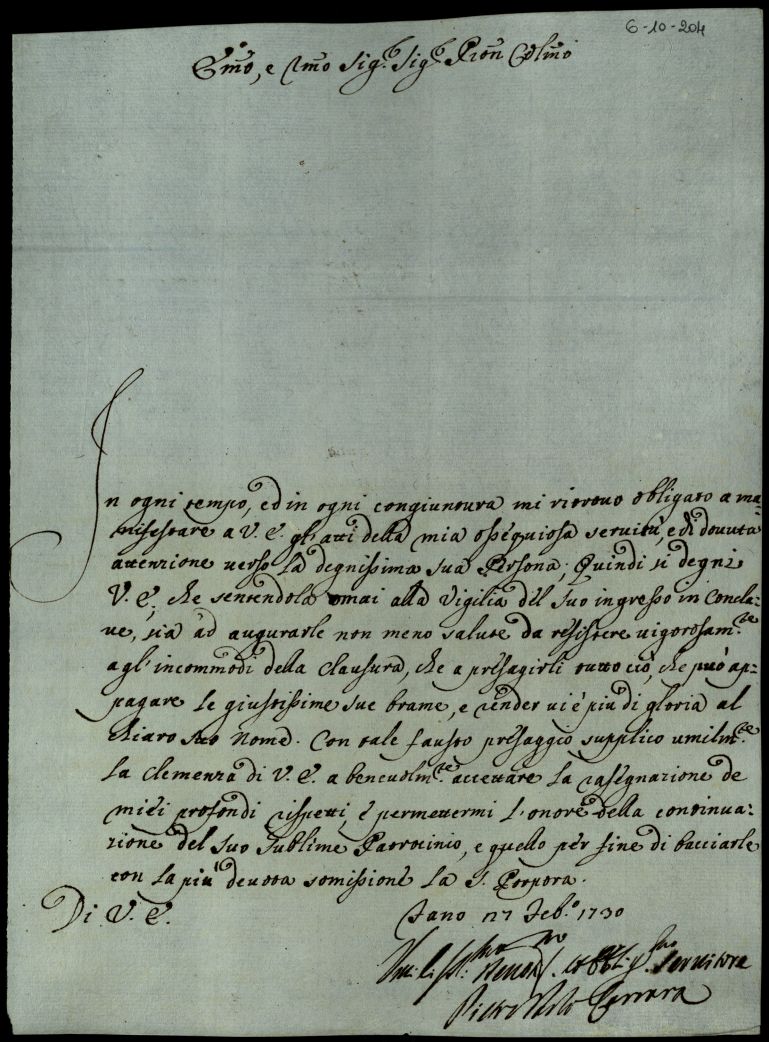 6-10-204
Emo, e Rmo Sig.r Sig.r Pron Colmo
In ogni tempo, ed in ogni congiuntura mi ritrovo obligato a ma:
nifestare a V. E. gl'atti della mia ossequiosa servitù, e di dovuta
attenzione verso la degnissima sua Persona; Quindi si degni
V. E., che sentendola omai alla Vigilia del suo ingresso in Concla:
ve, sia ad augurarle non meno salute da resistere vigorosam.te
agl'incommodi della clausura, che a presagirli tutto ciò, che può ap:
pagare le giustissime sue brame, e render vi è più di gloria al
chiaro suo Nome. Con tale fausto presaggio supplico umilm.te
la clemenza di V. E. a benevolm.te accettare la rasegnazione de
miei profondi rispetti, e permettermi l'onore della continua:
zione del suo sublime Patrocinio, e quello per fine di bacciarle
con la più devota somissione la S. Porpora.
Di V. E.
Fano 27 Feb.o 1730
Servitore
Pietro Ferrara